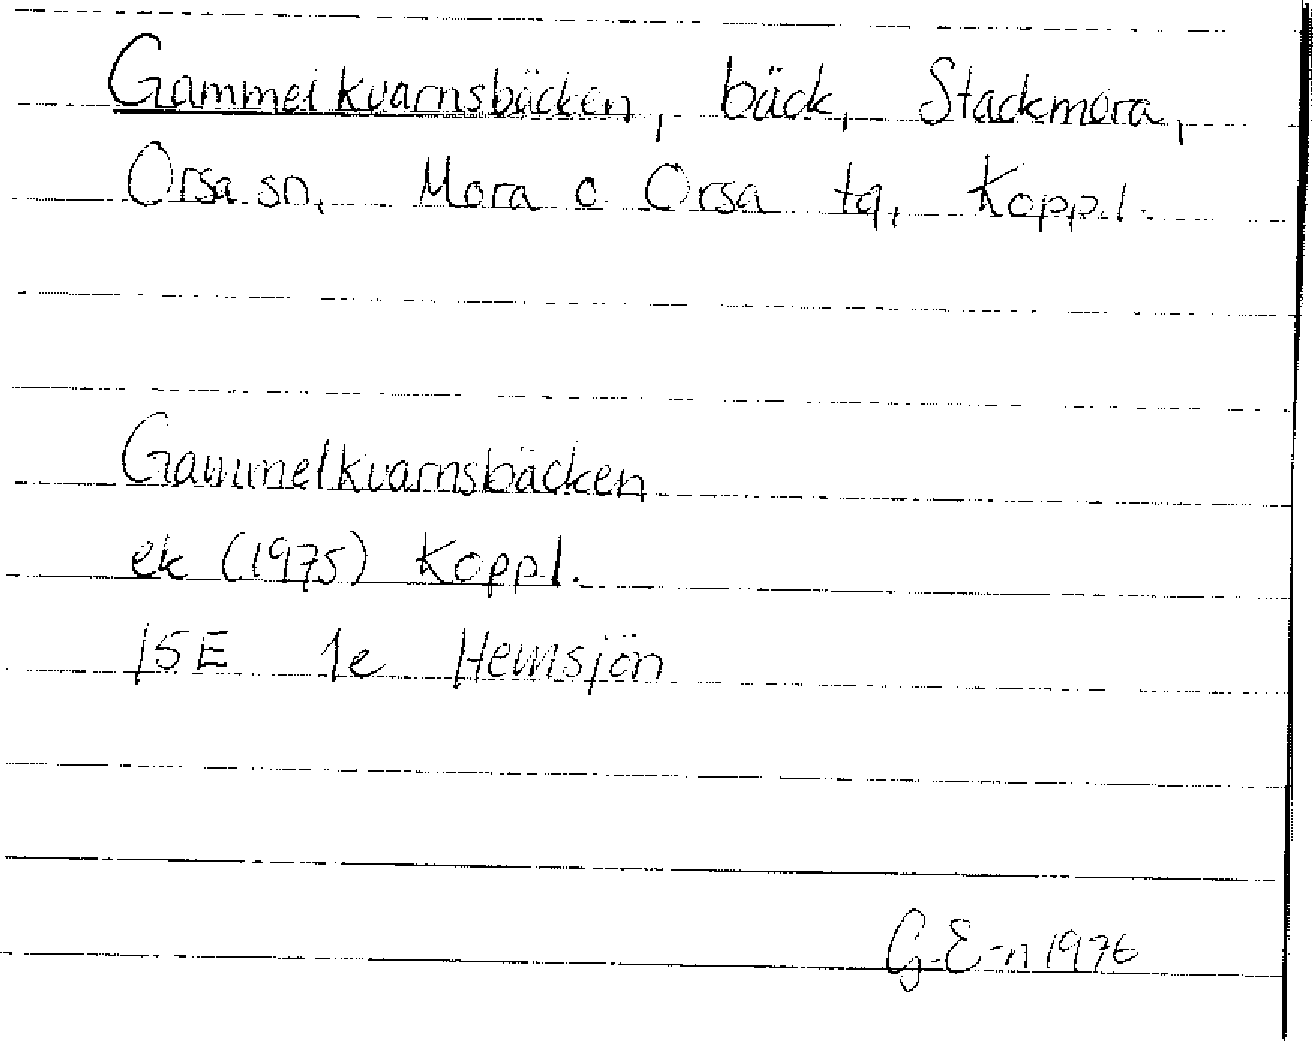 Gammelkvarnsbäcken, bäck, Stackmora,
Orsa sn, Mora o Orsa tg, Koppl.
Gammelkvarnsbäcken
ek (1975) Koppl.
15E 1e Hemsjön
G.E-n 1976